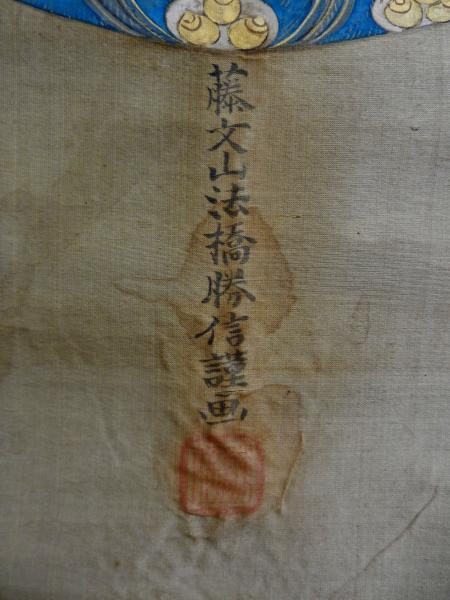 藤文山法橋勝信謹画